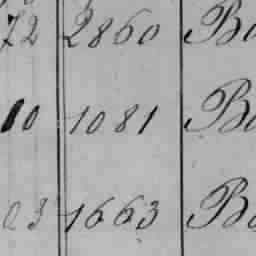 72 2860 Ba
10 1081 Ba
03 1663 Ba